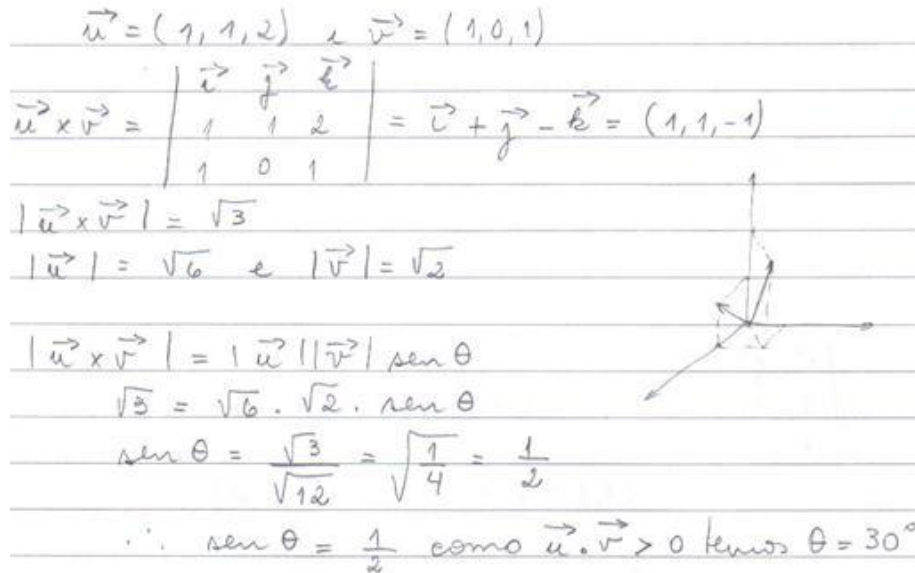 u⃗ = (1, 1, 2) e v⃗ = (1, 0, 1)
u⃗ × v⃗ = | i⃗ j⃗ k⃗ ; 1 1 2 ; 1 0 1 | = i⃗ + j⃗ - k⃗ = (1, 1, -1)
|u⃗ × v⃗| = √3
|u⃗| = √6 e |v⃗| = √2
|u⃗ × v⃗| = |u⃗||v⃗| sen θ
√3 = √6 . √2 . sen θ
sen θ = √3/√12 = √(1/4) = 1/2
∴ sen θ = 1/2 como u⃗ . v⃗ > 0 temos θ = 30°